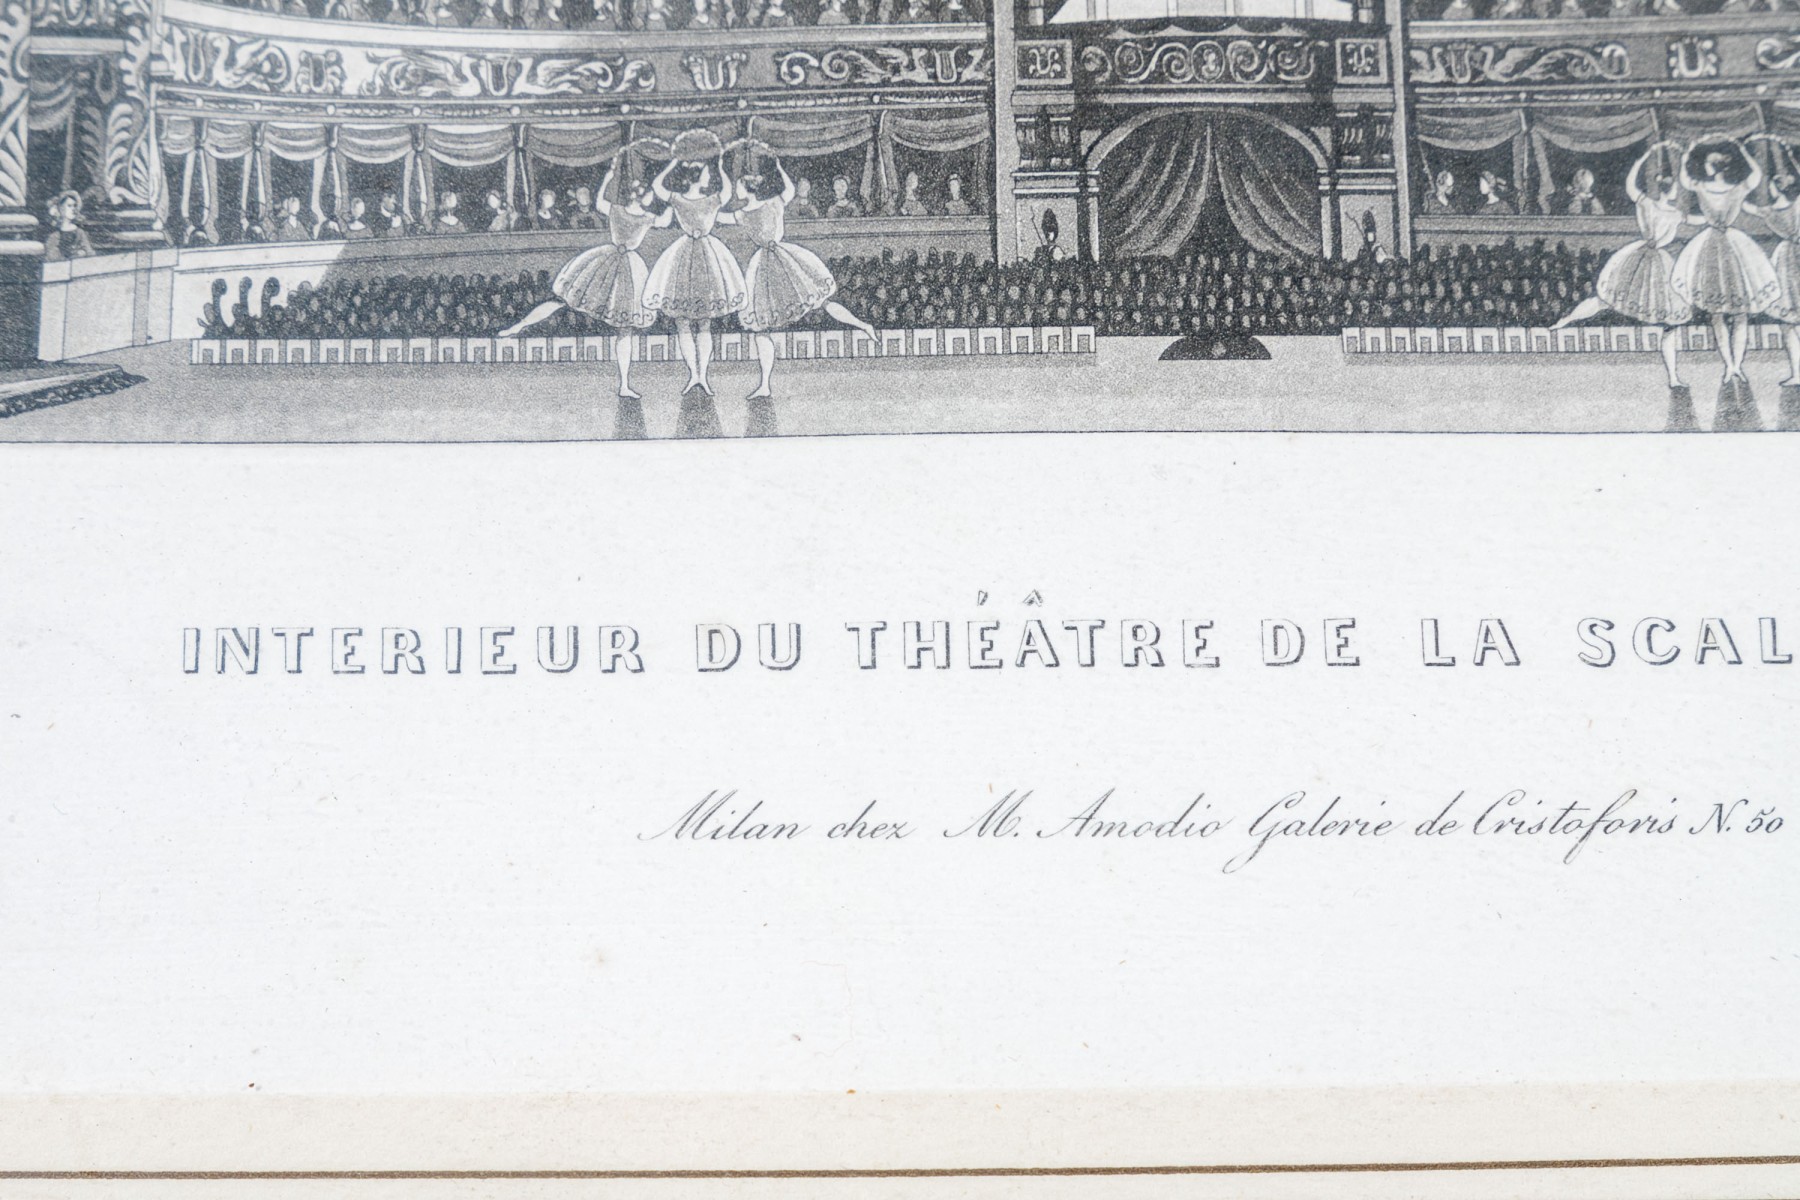 INTERIEUR DU THÉÂTRE DE LA SCAL
Milan chez M. Amodio Galerie de Cristoforis N. 50